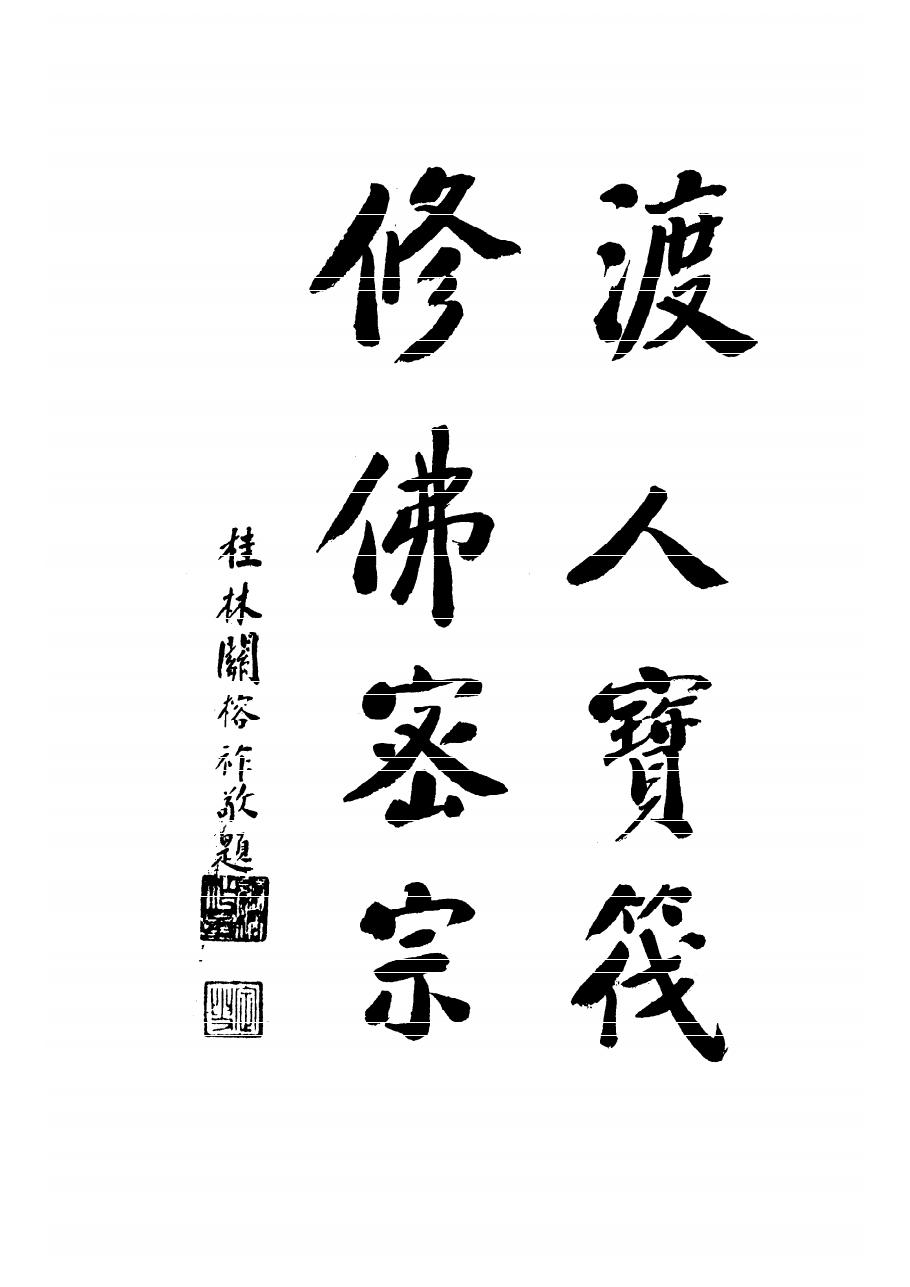 渡人寶筏
修佛密宗
桂林關榕祚敬題